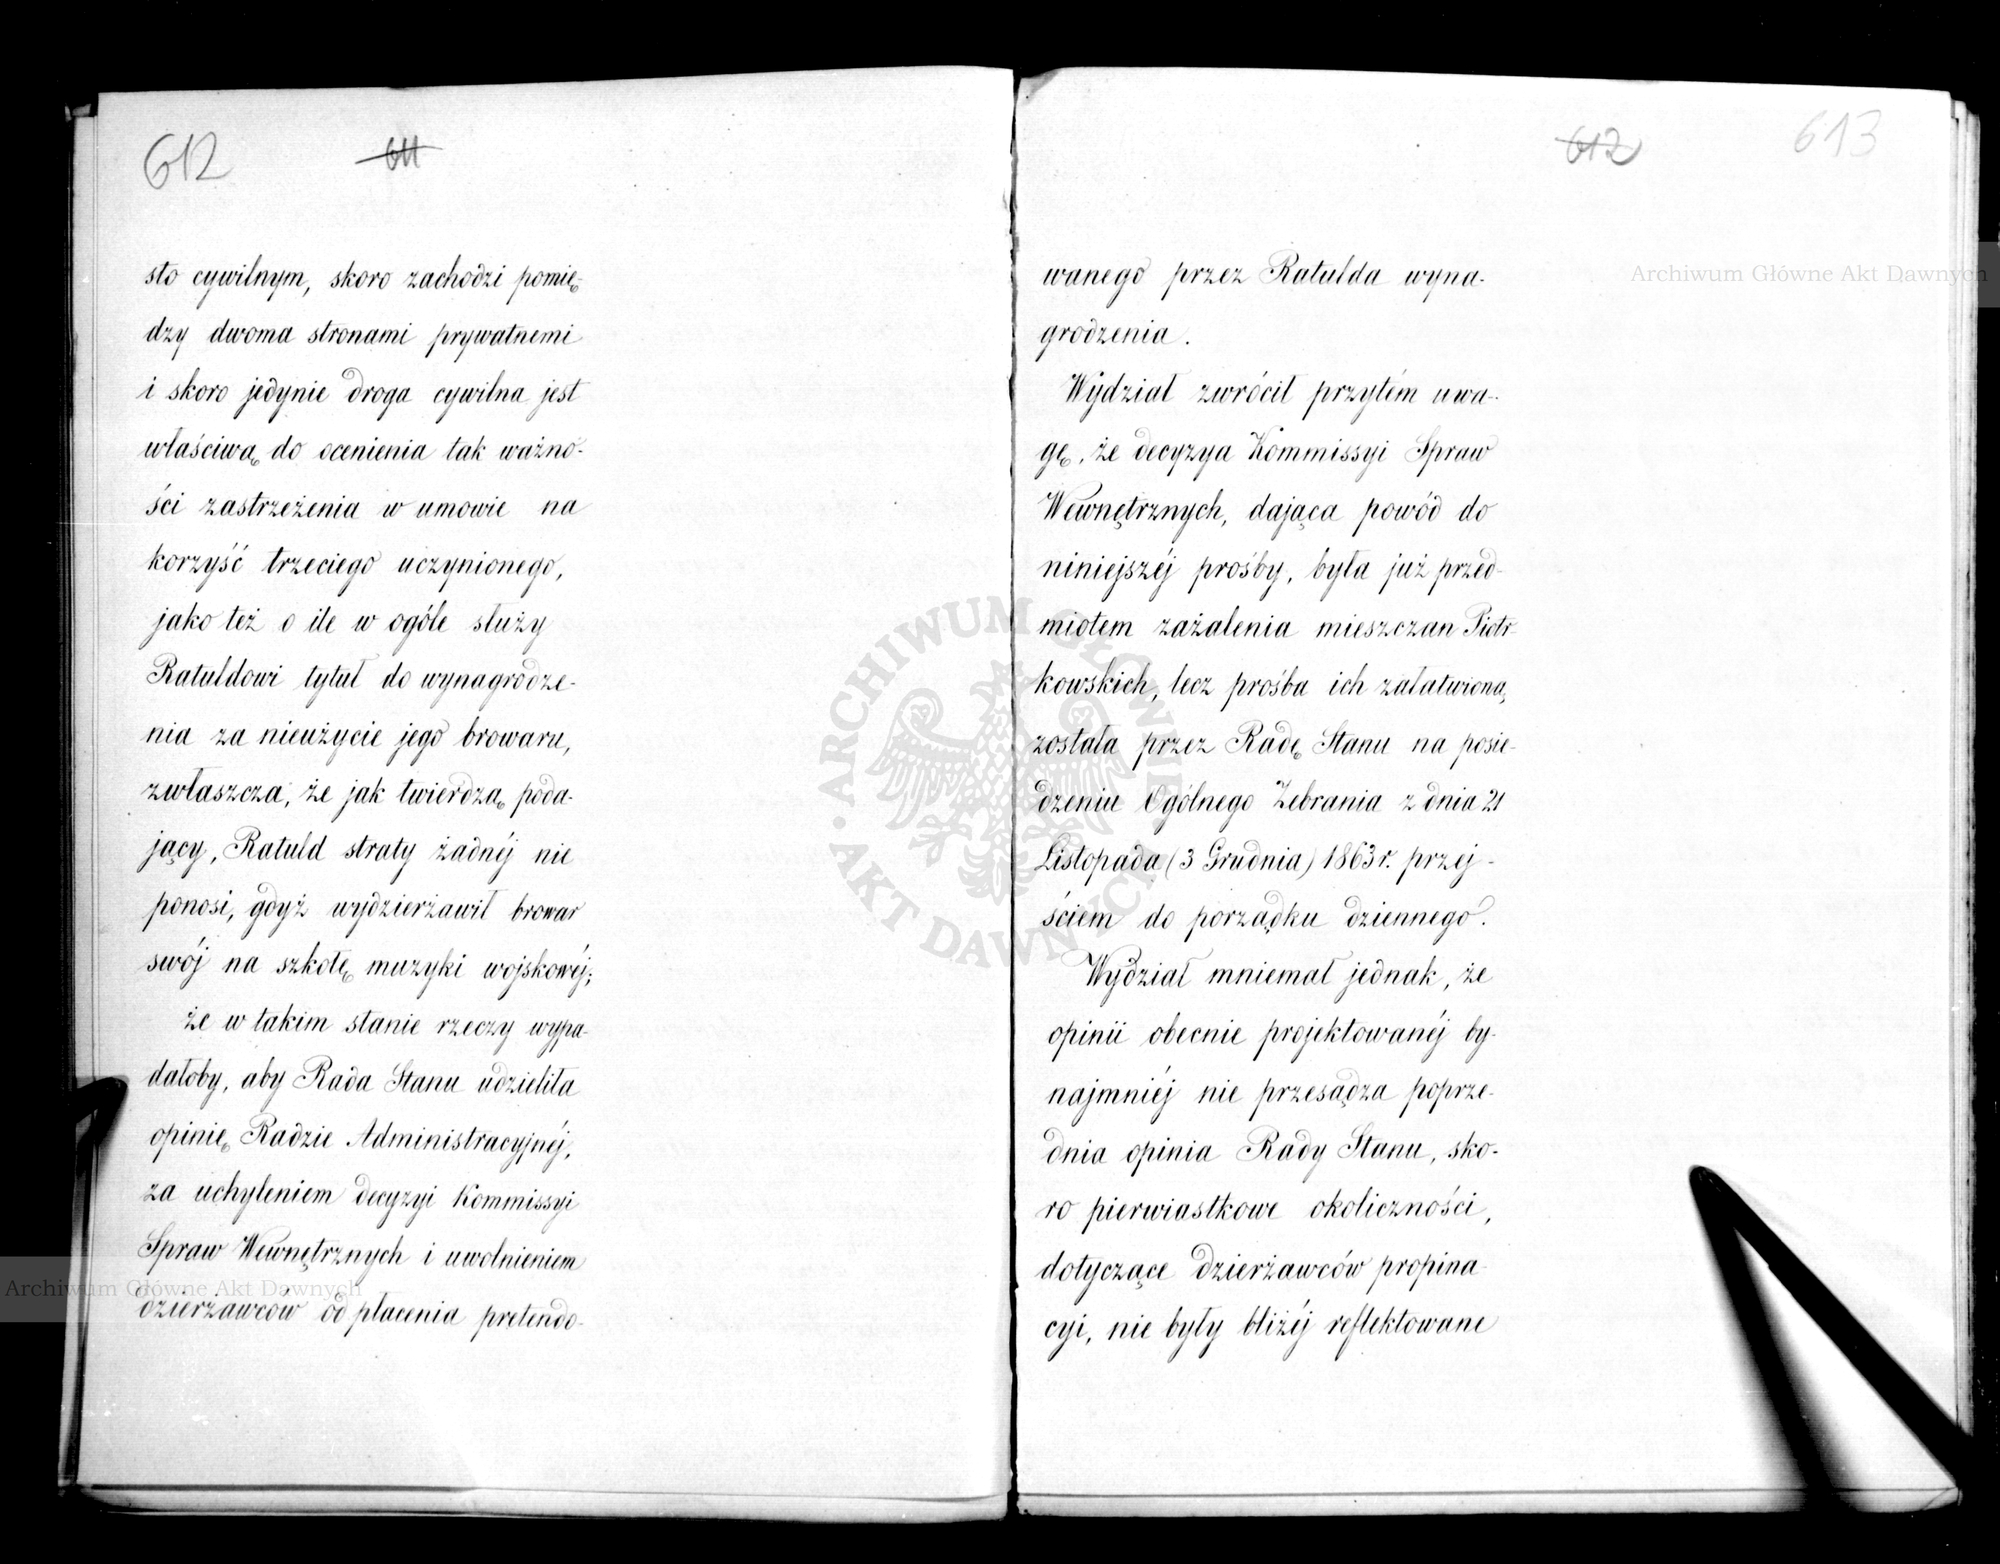 612 611
sto cywilnym, skoro zachodzi pomię-
dzy dwoma stronami prywatnemi
i skoro jedynie droga cywilna jest
właściwą do ocenienia tak ważno-
ści zastrzeżenia w umowie na
korzyść trzeciego uczynionego,
jako też o ile w ogóle służy
Ratuldowi tytuł do wynagrodze-
nia za nieużycie jego browaru,
zwłaszcza, że jak twierdzą poda-
jący, Ratuld straty żadnéj nie
ponosi, gdyż wydzierżawił browar
swój na szkołę muzyki wojskowéj;
że w takim stanie rzeczy wypa-
dałoby, aby Rada Stanu udzieliła
opinię Radzie Administracyjnéj,
za uchyleniem decyzyi Kommissyi
Spraw Wewnętrznych i uwolnieniem
dzierżawców od płacenia pretendo-
612 613
wanego przez Ratulda wyna-
grodzenia.
Wydział zwrócił przytém uwa-
gę, że decyzya Kommissyi Spraw
Wewnętrznych, dająca powód do
niniejszéj prośby, była już przed-
miotem zażalenia mieszczan Piotr-
kowskich, lecz prośba ich załatwioną
została przez Radę Stanu na posie-
dzeniu Ogólnego Zebrania z dnia 21
Listopada (3 Grudnia) 1863 r. przej-
ściem do porządku dziennego.
Wydział mniemał jednak, że
opinii obecnie projektowanéj by-
najmniéj nie przesądza poprze-
dnia opinia Rady Stanu, sko-
ro pierwiastkowe okoliczności,
dotyczące dzierżawców propina-
cyi, nie były bliżéj reflektowane
Archiwum Główne Akt Dawnych
Archiwum Główne Akt Dawnych
ARCHIWUM GŁÓWNE • AKT DAWNYCH •